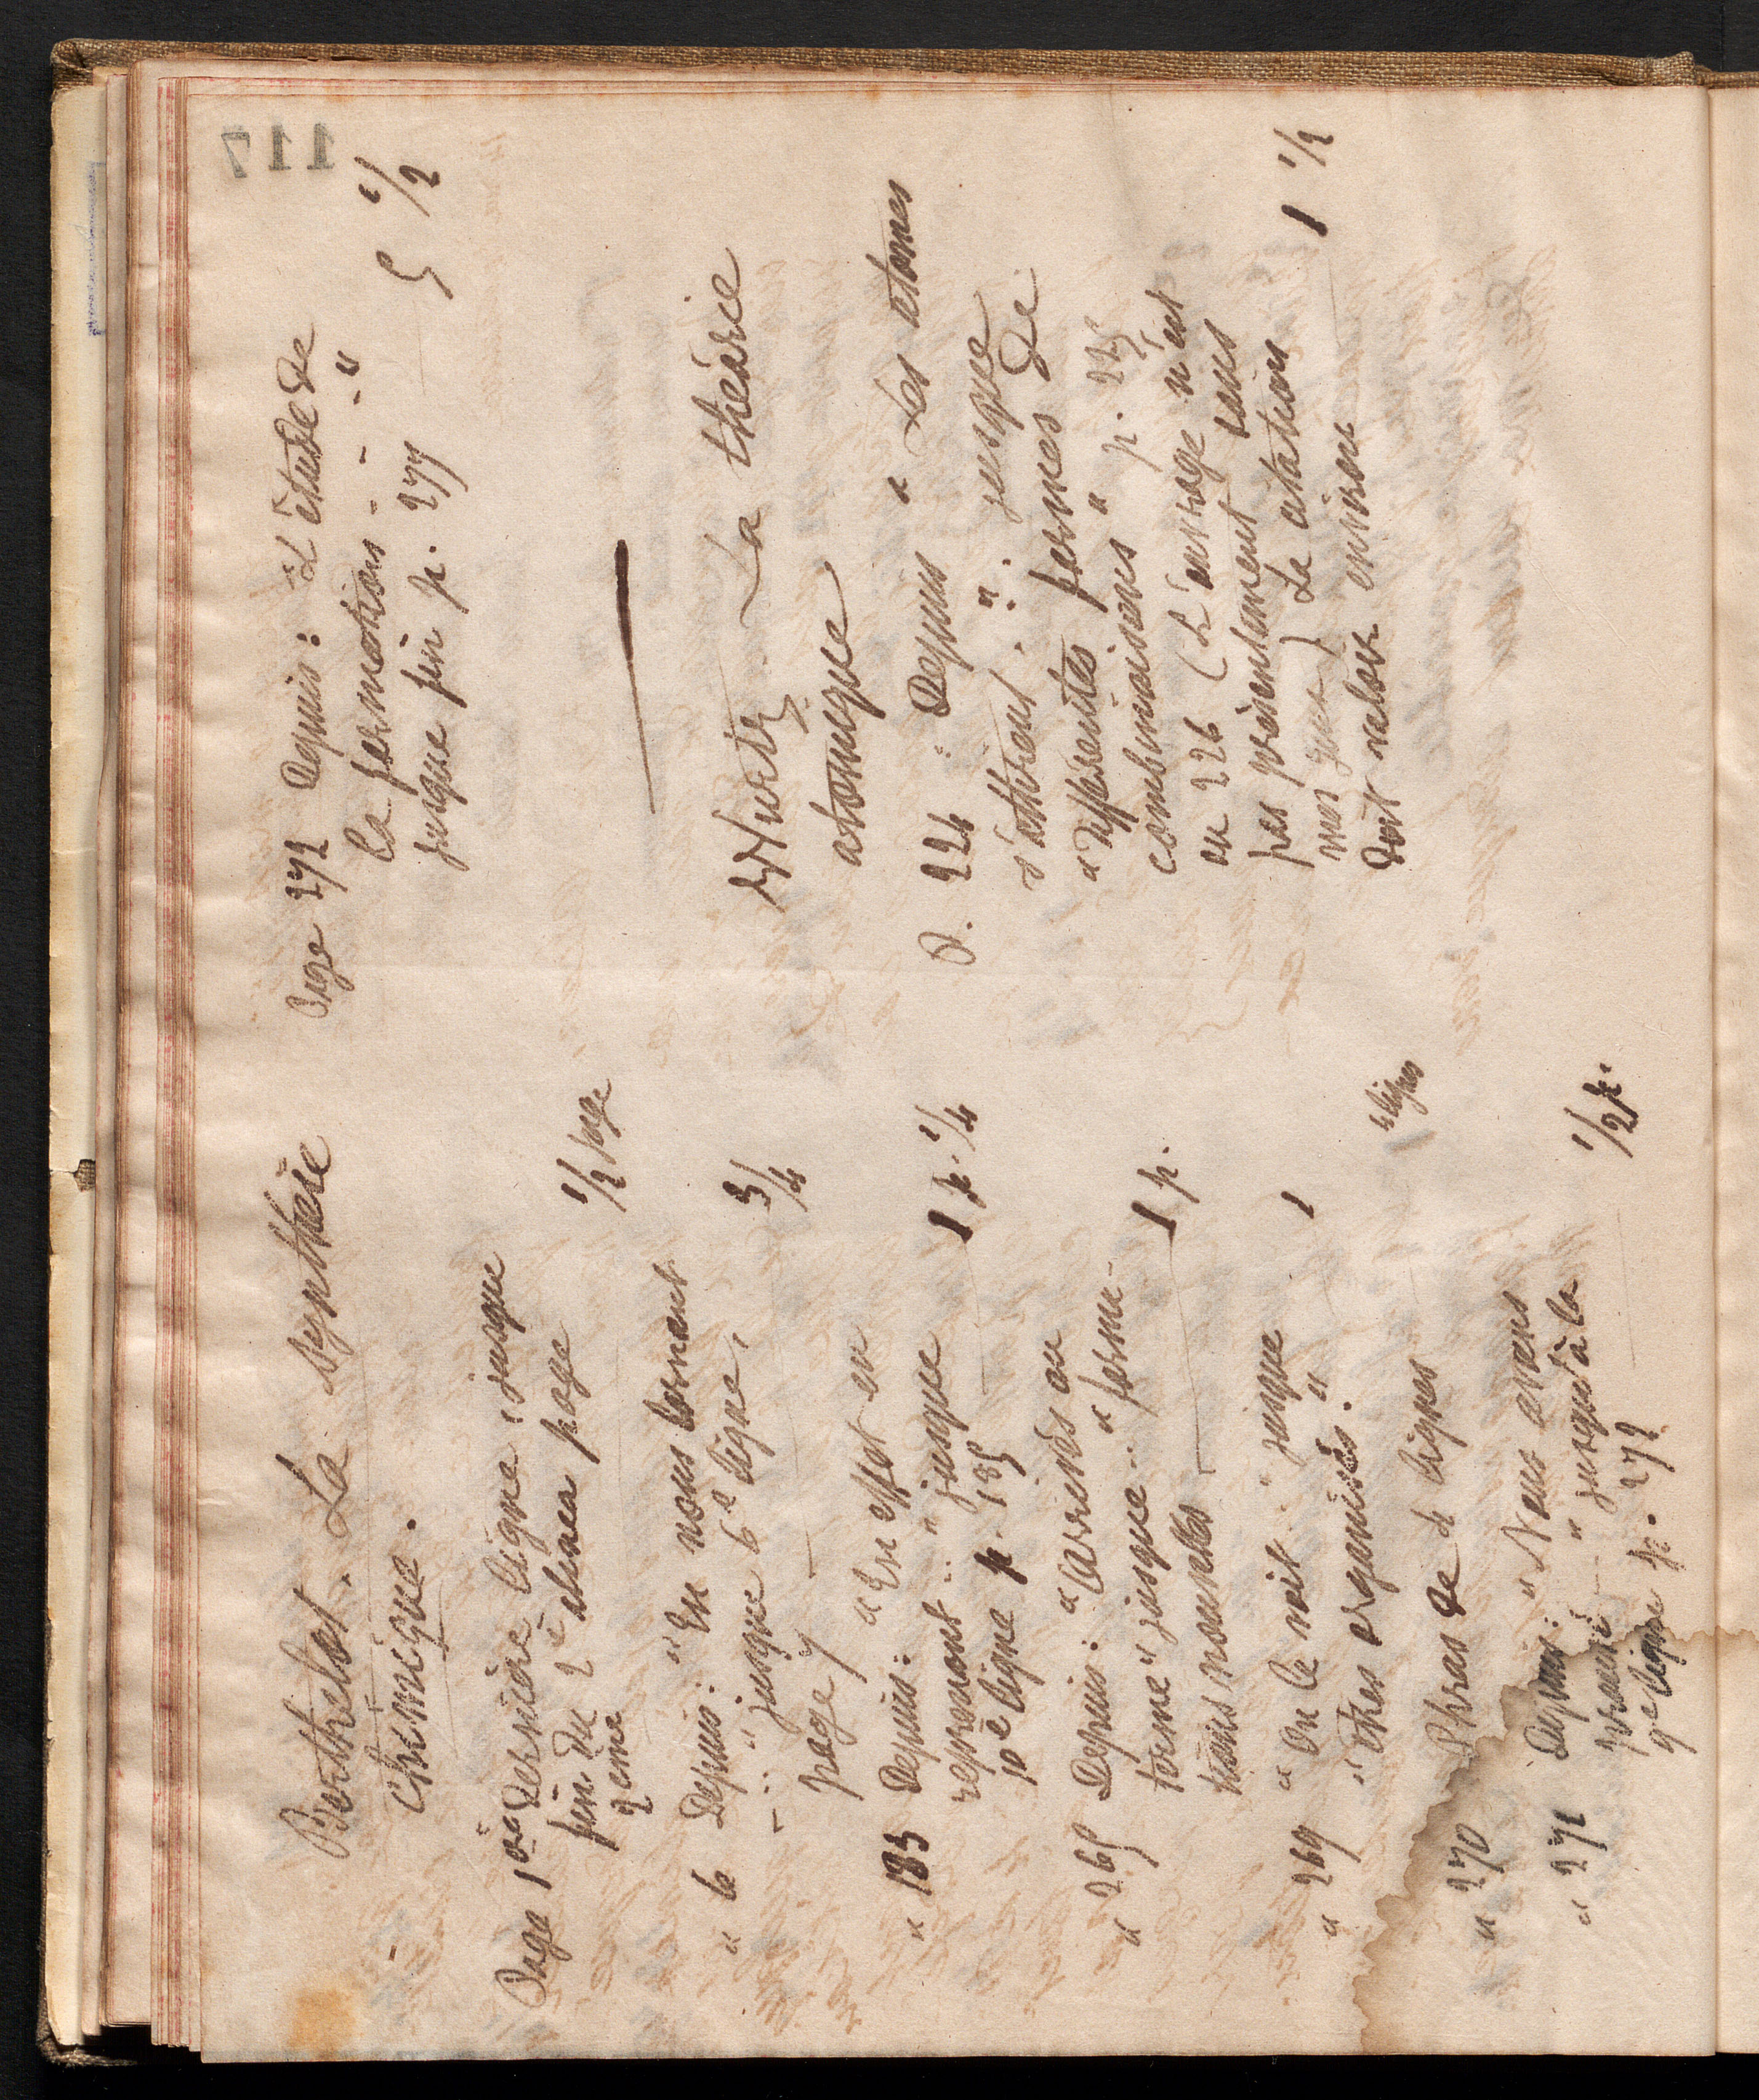 Berthelot. La synthèse
chimique.
Page 1ère dernière ligne jusque
fin du 2e alinea page
2eme
1/2 page
" 6 Depuis. "En nous bornant
- .. " jusque 6e ligne,
page 7
3/4
" 183 Depuis: "En effet en
reprenant .. " jusque
10e ligne p. 185
1 p. 1/4
" 265 Depuis: "Carrénés ou
terme" jusque .. "formu-
tions nouvelles
1 p.
" 269 " On le voit .. jusque
" êtres organisés. "
1
" 270 Phras de 4 lignes
4 lignes
" 271 Depuis: "Nous avons
prouvé - " jusqu'à la
9e ligne p. 272
1/2 p.
Page 272 Depuis: "L'étude de
la formation - - - "
jusque fin p. 277
5 1/2
Wurtz. La théorie
atomique
P. 224 : Depuis " Les atomes
s'attirent . ". jusque
" différentes formes de
combinaisons " p. 225
ou 226 (L'ouvrage n'est
pas présentement sous
mes yeux) La citation
doit valoir environ
1 1/2
117